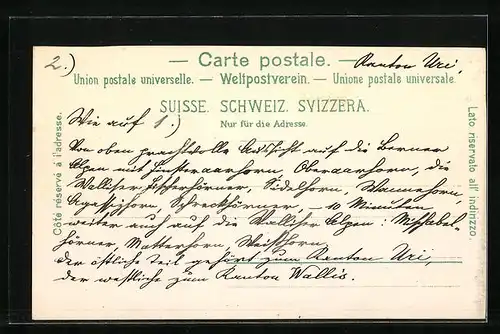 2.)
— Carte postale. —
Kanton Uri,
Union postale universelle. — Weltpostverein. — Unione postale universale.
SUISSE. SCHWEIZ. SVIZZERA.
Nur für die Adresse.
Côté réservé à l'adresse.
Lato riservato all' indirizzo.
Wie auf 1.)
Von oben prachtvolle Aussicht auf die Berner
Alpen mit Finsteraarhorn, Oberaarhorn, die
Walliser Fiescherhörner, Sidelhorn, Wannehorn,
Agassizhorn, Schreckhörner, — 10 Minuten
weiter auch auf die Walliser Alpen: Mischabel-
hörner, Matterhorn, Weisshorn.
Der östliche Teil gehört zum Kanton Uri,
der westliche zum Kanton Wallis.